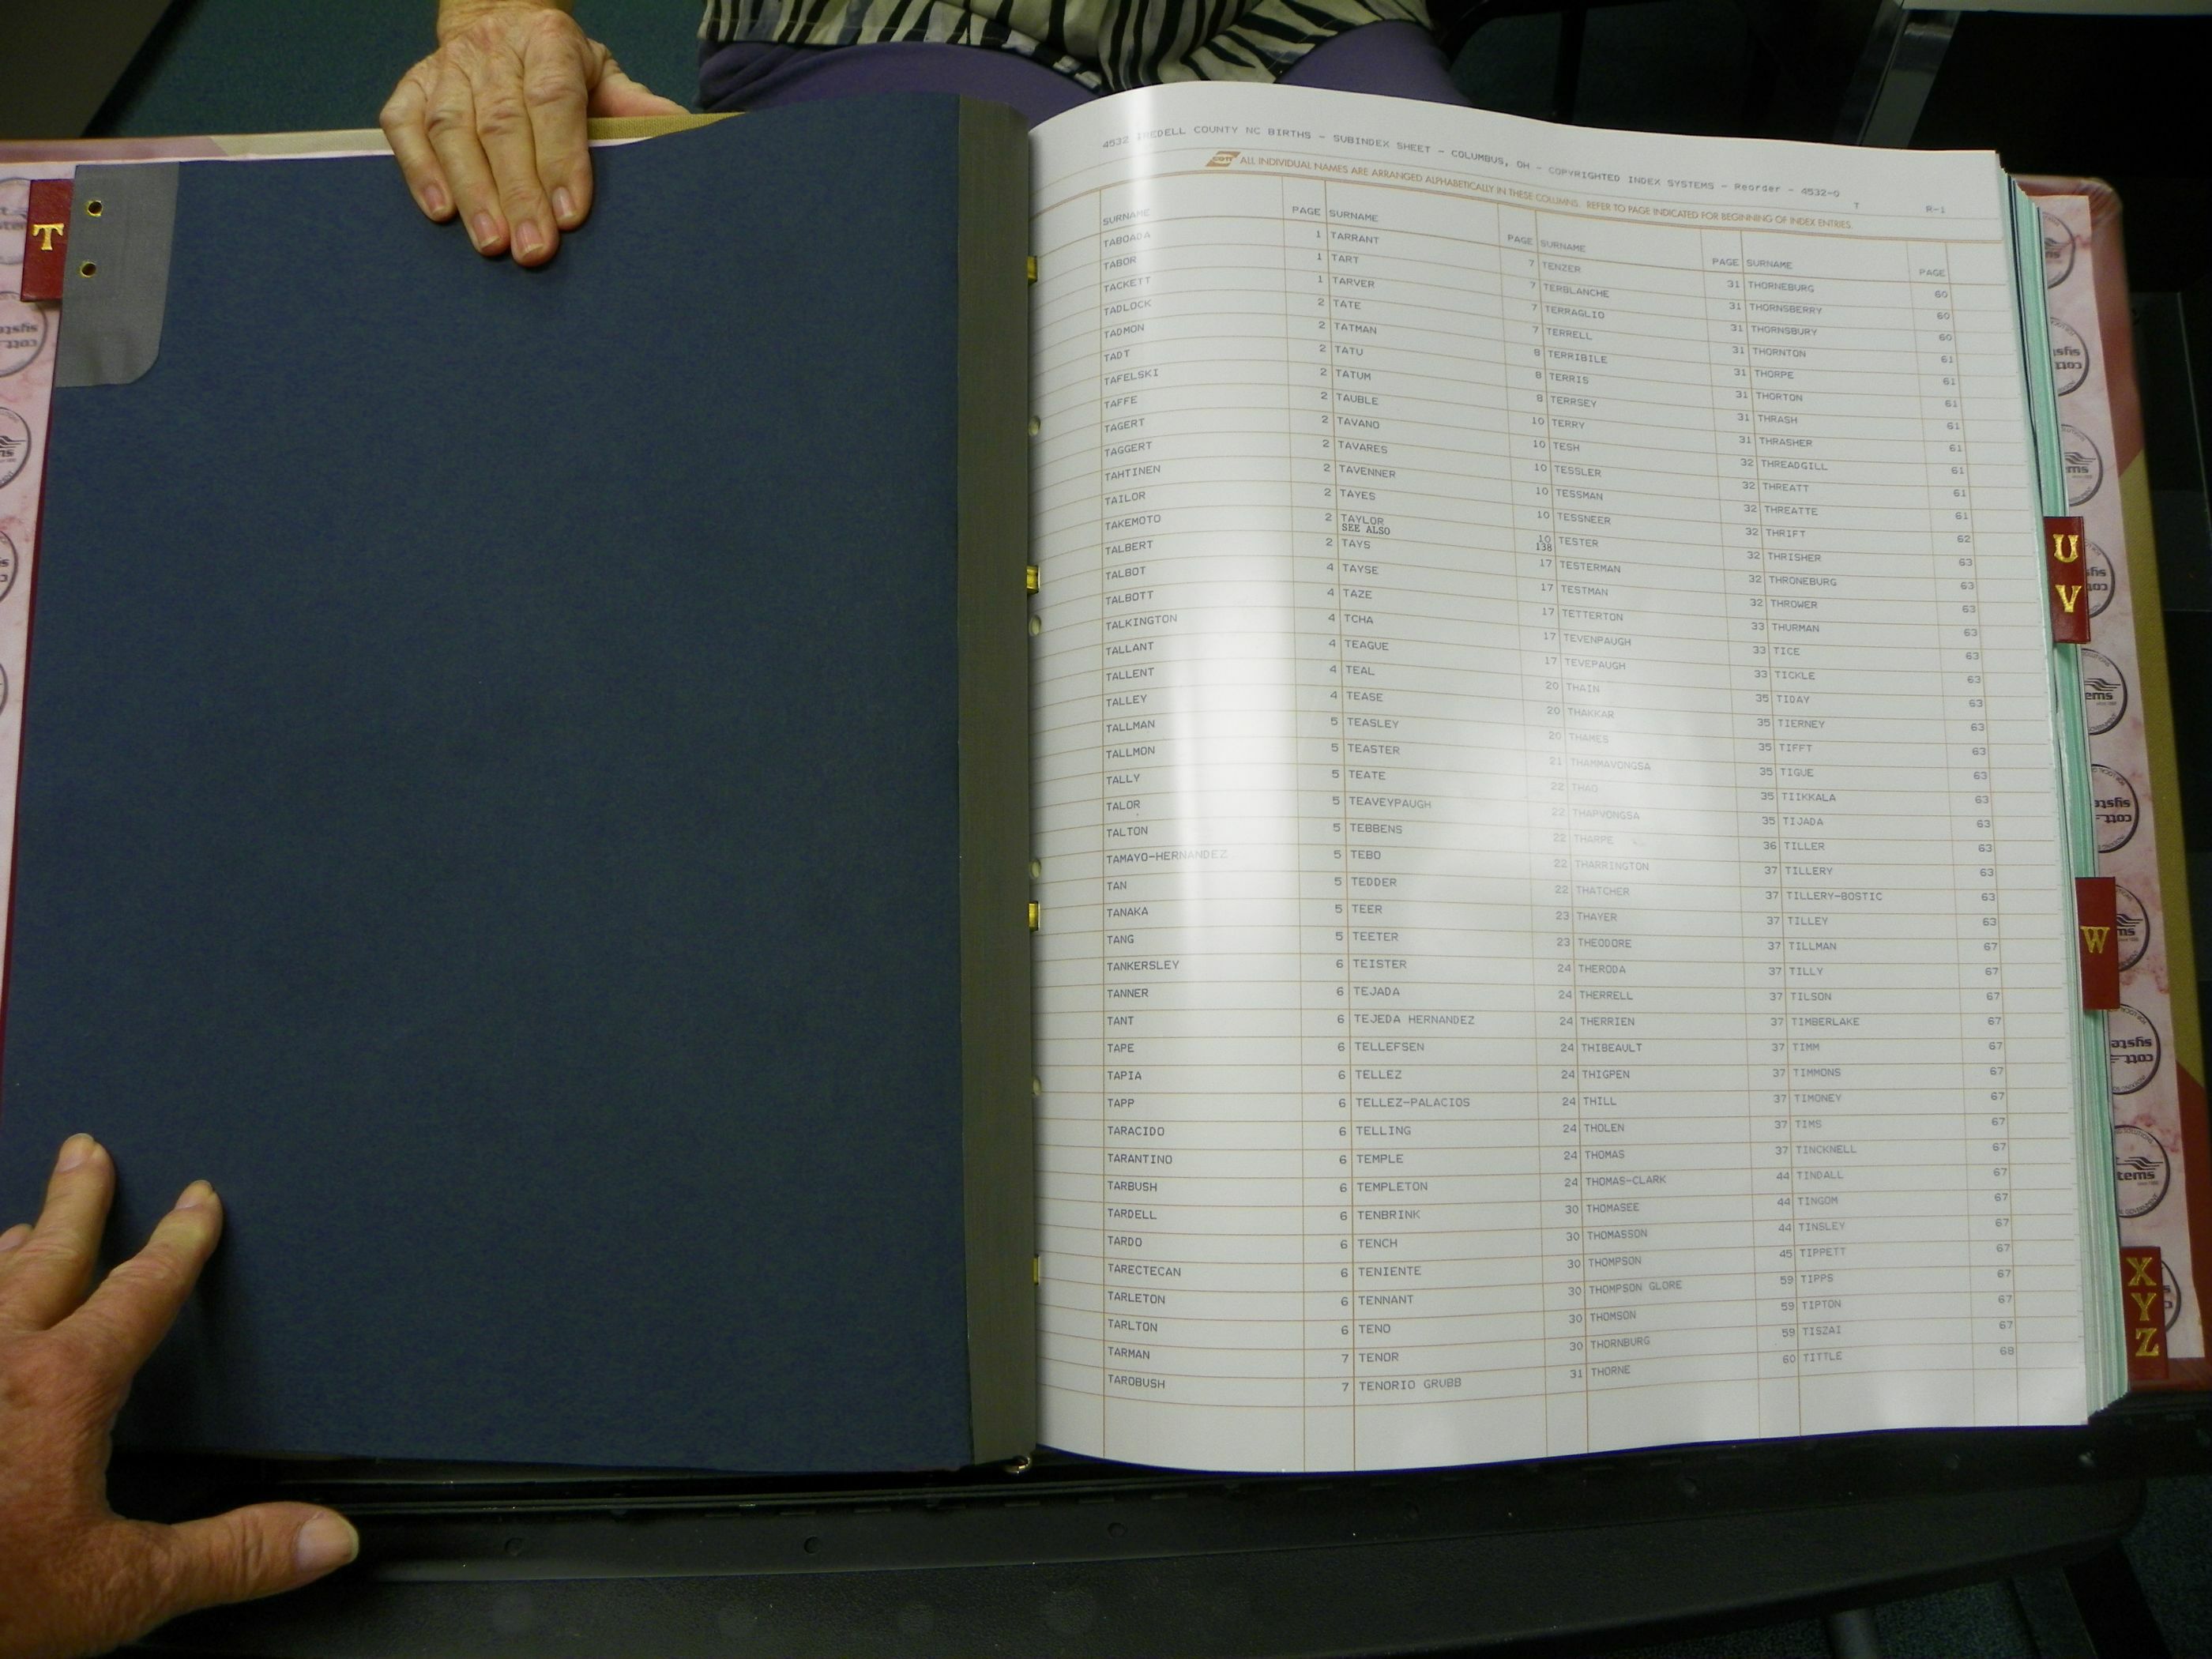 4532 IREDELL COUNTY NC BIRTHS - SUBINDEX SHEET - COLUMBUS, OH - COPYRIGHTED INDEX SYSTEMS - Reorder - 4532-0 T R-1
cott ALL INDIVIDUAL NAMES ARE ARRANGED ALPHABETICALLY IN THESE COLUMNS. REFER TO PAGE INDICATED FOR BEGINNING OF INDEX ENTRIES.
SURNAME PAGE
TABOADA 1
TABOR 1
TACKETT 1
TADLOCK 2
TADMON 2
TADT 2
TAFELSKI 2
TAFFE 2
TAGERT 2
TAGGERT 2
TAHTINEN 2
TAILOR 2
TAKEMOTO 2
TALBERT 2
TALBOT 4
TALBOTT 4
TALKINGTON 4
TALLANT 4
TALLENT 4
TALLEY 4
TALLMAN 5
TALLMON 5
TALLY 5
TALOR 5
TALTON 5
TAMAYO-HERNANDEZ 5
TAN 5
TANAKA 5
TANG 5
TANKERSLEY 6
TANNER 6
TANT 6
TAPE 6
TAPIA 6
TAPP 6
TARACIDO 6
TARANTINO 6
TARBUSH 6
TARDELL 6
TARDO 6
TARECTECAN 6
TARLETON 6
TARLTON 6
TARMAN 7
TAROBUSH 7
SURNAME PAGE
TARRANT 7
TART 7
TARVER 7
TATE 7
TATMAN 8
TATU 8
TATUM 8
TAUBLE 10
TAVANO 10
TAVARES 10
TAVENNER 10
TAYES 10
TAYLOR 10
SEE ALSO 138
TAYS 17
TAYSE 17
TAZE 17
TCHA 17
TEAGUE 17
TEAL 20
TEASE 20
TEASLEY 20
TEASTER 21
TEATE 22
TEAVEYPAUGH 22
TEBBENS 22
TEBO 22
TEDDER 22
TEER 23
TEETER 23
TEISTER 24
TEJADA 24
TEJEDA HERNANDEZ 24
TELLEFSEN 24
TELLEZ 24
TELLEZ-PALACIOS 24
TELLING 24
TEMPLE 24
TEMPLETON 24
TENBRINK 30
TENCH 30
TENIENTE 30
TENNANT 30
TENO 30
TENOR 30
TENORIO GRUBB 31
SURNAME PAGE
TENZER 31
TERBLANCHE 31
TERRAGLIO 31
TERRELL 31
TERRIBILE 31
TERRIS 31
TERRSEY 31
TERRY 31
TESH 32
TESSLER 32
TESSMAN 32
TESSNEER 32
TESTER 32
TESTERMAN 32
TESTMAN 32
TETTERTON 33
TEVENPAUGH 33
TEVEPAUGH 33
THAIN 35
THAKKAR 35
THAMES 35
THAMMAVONGSA 35
THAO 35
THAPVONGSA 35
THARPE 36
THARRINGTON 37
THATCHER 37
THAYER 37
THEODORE 37
THERODA 37
THERRELL 37
THERRIEN 37
THIBEAULT 37
THIGPEN 37
THILL 37
THOLEN 37
THOMAS 37
THOMAS-CLARK 44
THOMASEE 44
THOMASSON 44
THOMPSON 45
THOMPSON GLORE 59
THOMSON 59
THORNBURG 59
THORNE 60
SURNAME PAGE
THORNEBURG 60
THORNSBERRY 60
THORNSBURY 60
THORNTON 61
THORPE 61
THORTON 61
THRASH 61
THRASHER 61
THREADGILL 61
THREATT 61
THREATTE 61
THRIFT 62
THRISHER 63
THRONEBURG 63
THROWER 63
THURMAN 63
TICE 63
TICKLE 63
TIDAY 63
TIERNEY 63
TIFFT 63
TIGUE 63
TIIKKALA 63
TIJADA 63
TILLER 63
TILLERY 63
TILLERY-BOSTIC 63
TILLEY 63
TILLMAN 67
TILLY 67
TILSON 67
TIMBERLAKE 67
TIMM 67
TIMMONS 67
TIMONEY 67
TIMS 67
TINCKNELL 67
TINDALL 67
TINGOM 67
TINSLEY 67
TIPPETT 67
TIPPS 67
TIPTON 67
TISZAI 67
TITTLE 68
T
U
V
W
X
Y
Z